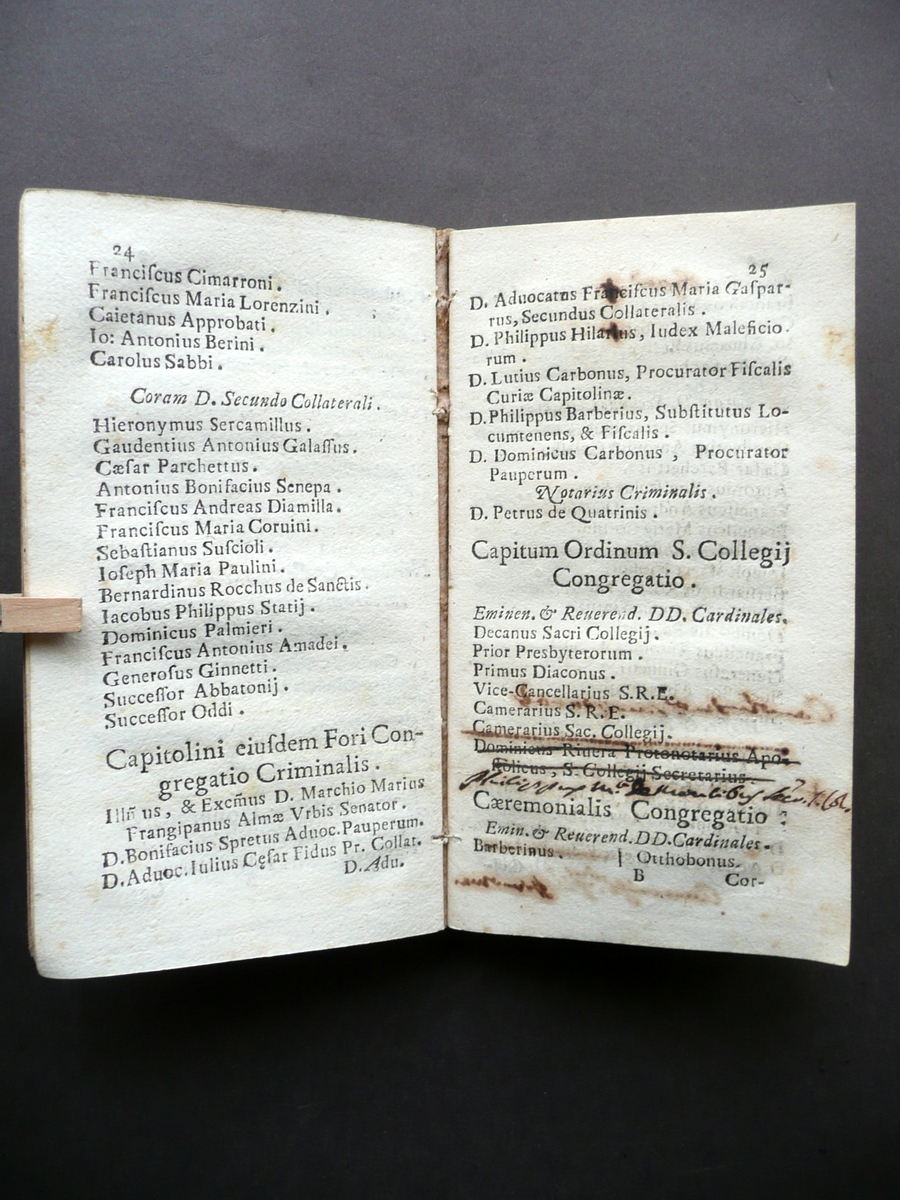 24
Franciſcus Cimarroni.
Franciſcus Maria Lorenzini.
Caietanus Approbati.
Io: Antonius Berini.
Carolus Sabbi.
Coram D. Secundo Collaterali.
Hieronymus Sercamillus.
Gaudentius Antonius Galaſſus.
Cæſar Parchettus.
Antonius Bonifacius Senepa.
Franciſcus Andreas Diamilla.
Franciſcus Maria Coruini.
Sebaſtianus Suſcioli.
Ioſeph Maria Paulini.
Bernardinus Rocchus de Sanctis.
Iacobus Philippus Statij.
Dominicus Palmieri.
Franciſcus Antonius Amadei.
Generoſus Ginnetti.
Succeſſor Abbatonij.
Succeſſor Oddi.
Capitolini eiuſdem Fori Con-
gregatio Criminalis.
Illm̃us, & Excm̃us D. Marchio Marius
Frangipanus Almæ Vrbis Senator.
D. Bonifacius Spretus Aduoc. Pauperum.
D. Aduoc. Iulius Cęſar Fidus Pr. Collat.
D. Adu.
25
D. Aduocatus Franciſcus Maria Gaſpar-
rus, Secundus Collateralis.
D. Philippus Hilarius, Iudex Maleficio.
rum.
D. Lutius Carbonus, Procurator Fiſcalis
Curiæ Capitolinæ.
D. Philippus Barberius, Subſtitutus Lo-
cumtenens, & Fiſcalis.
D. Dominicus Carbonus, Procurator
Pauperum.
Notarius Criminalis.
D. Petrus de Quatrinis.
Capitum Ordinum S. Collegij
Congregatio.
Eminen. & Reuerend. DD. Cardinales.
Decanus Sacri Collegij.
Prior Presbyterorum.
Primus Diaconus.
Vice-Cancellarius S.R.E.
Camerarius S.R.E.
Camerarius Sac. Collegij.
Dominicus Riuera Protonotarius Apo-
ſtolicus, S. Collegij Secretarius.
Philippus
Cæremonialis Congregatio:
Emin. & Reuerend. DD. Cardinales.
Barberinus. | Otthobonus.
B Cor-